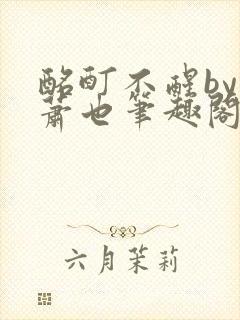 酩酊不醒by
萧也笔趣阁
六月茉莉